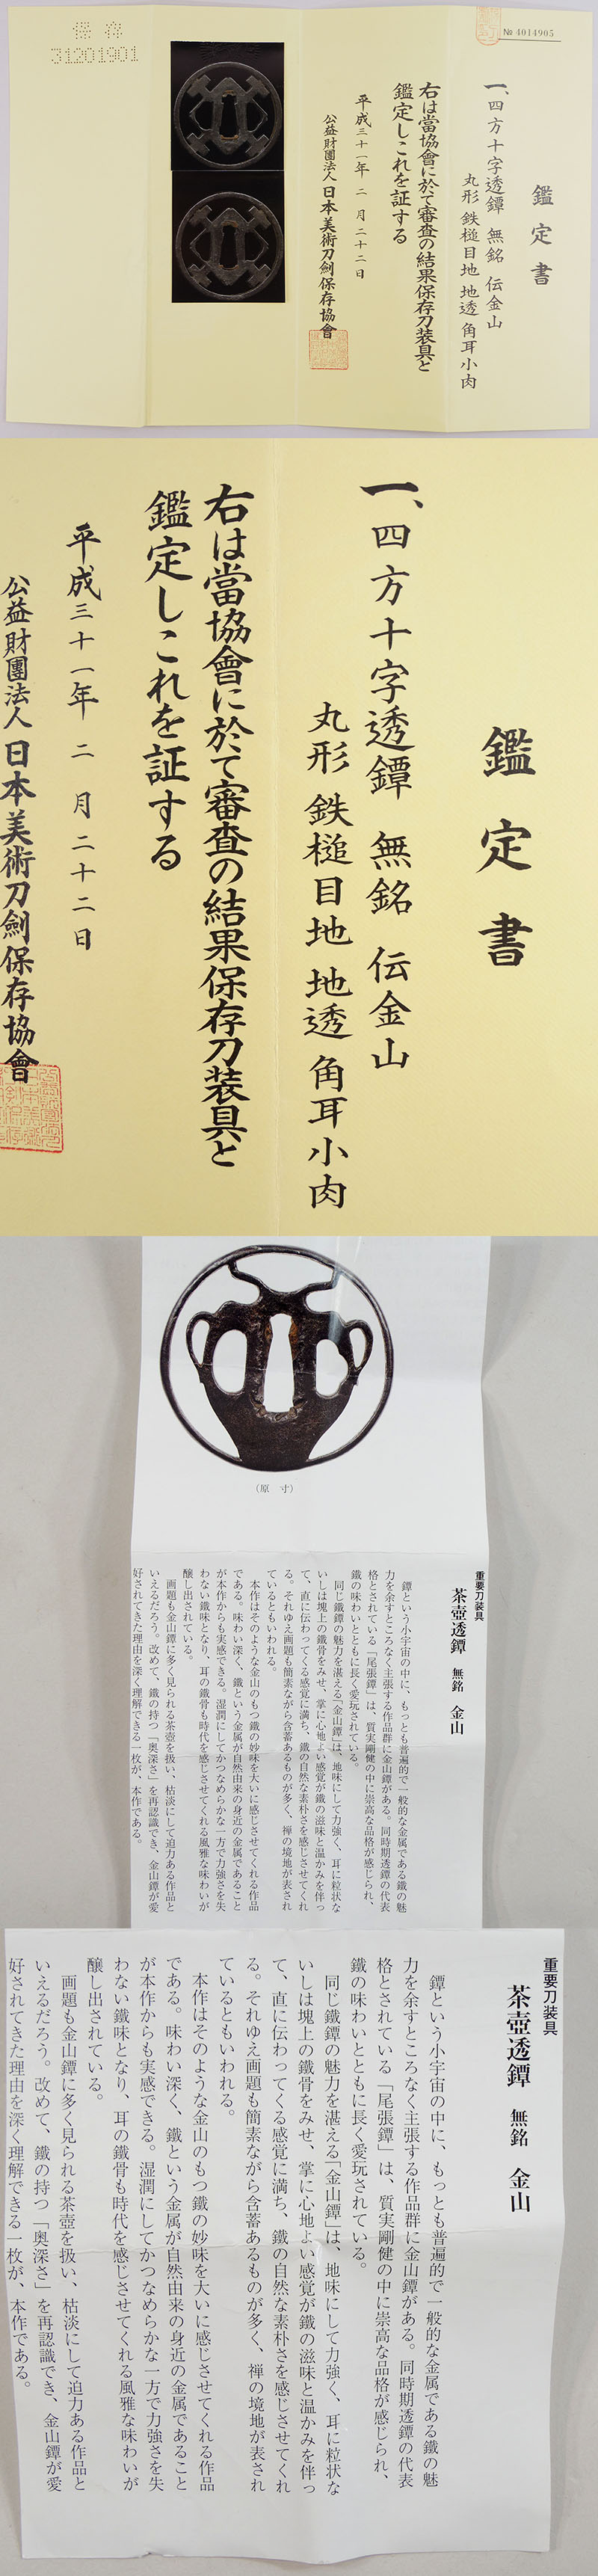 保存
31201901
№ 4014905
鑑定書
一、四方十字透鐔 無銘 伝金山
丸形 鉄槌目地 地透 角耳小肉
右は當協會に於て審査の結果保存刀装具と
鑑定しこれを証する
平成三十一年 二月二十二日
公益財團法人日本美術刀劍保存協會
鑑定書
一、四方十字透鐔 無銘 伝金山
丸形 鉄槌目地 地透 角耳小肉
右は當協會に於て審査の結果保存刀装具と
鑑定しこれを証する
平成三十一年 二月二十二日
公益財團法人日本美術刀劍保存協會
（原 寸）
重要刀装具
茶壺透鐔 無銘 金山
鐔という小宇宙の中に、もっとも普遍的で一般的な金属である鐵の魅
力を余すところなく主張する作品群に金山鐔がある。同時期透鐔の代表
格とされている「尾張鐔」は、質実剛健の中に崇高な品格が感じられ、
鐵の味わいとともに長く愛玩されている。
同じ鐵鐔の魅力を湛える「金山鐔」は、地味にして力強く、耳に粒状な
いしは塊上の鐵骨をみせ、掌に心地よい感覚が鐵の滋味と温かみを伴っ
て、直に伝わってくる感覚に満ち、鐵の自然な素朴さを感じさせてくれ
る。それゆえ画題も簡素ながら含蓄あるものが多く、禅の境地が表され
ているともいわれる。
本作はそのような金山のもつ鐵の妙味を大いに感じさせてくれる作品
である。味わい深く、鐵という金属が自然由来の身近の金属であること
が本作からも実感できる。湿潤にしてかつなめらかな一方で力強さを失
わない鐵味となり、耳の鐵骨も時代を感じさせてくれる風雅な味わいが
醸し出されている。
画題も金山鐔に多く見られる茶壺を扱い、枯淡にして迫力ある作品と
いえるだろう。改めて、鐵の持つ「奥深さ」を再認識でき、金山鐔が愛
好されてきた理由を深く理解できる一枚が、本作である。
重要刀装具
茶壺透鐔 無銘 金山
鐔という小宇宙の中に、もっとも普遍的で一般的な金属である鐵の魅
力を余すところなく主張する作品群に金山鐔がある。同時期透鐔の代表
格とされている「尾張鐔」は、質実剛健の中に崇高な品格が感じられ、
鐵の味わいとともに長く愛玩されている。
同じ鐵鐔の魅力を湛える「金山鐔」は、地味にして力強く、耳に粒状な
いしは塊上の鐵骨をみせ、掌に心地よい感覚が鐵の滋味と温かみを伴っ
て、直に伝わってくる感覚に満ち、鐵の自然な素朴さを感じさせてくれ
る。それゆえ画題も簡素ながら含蓄あるものが多く、禅の境地が表され
ているともいわれる。
本作はそのような金山のもつ鐵の妙味を大いに感じさせてくれる作品
である。味わい深く、鐵という金属が自然由来の身近の金属であること
が本作からも実感できる。湿潤にしてかつなめらかな一方で力強さを失
わない鐵味となり、耳の鐵骨も時代を感じさせてくれる風雅な味わいが
醸し出されている。
画題も金山鐔に多く見られる茶壺を扱い、枯淡にして迫力ある作品と
いえるだろう。改めて、鐵の持つ「奥深さ」を再認識でき、金山鐔が愛
好されてきた理由を深く理解できる一枚が、本作である。